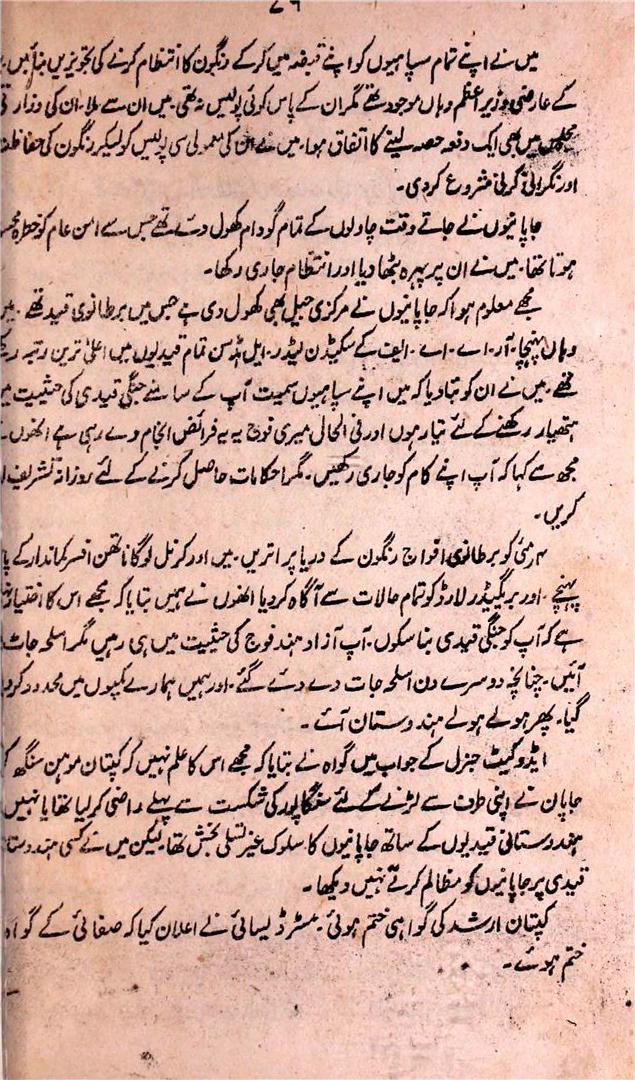 میں نے اپنے تمام سپاہیوں کو اپنے قبضہ میں کرکے رنگون کا انتظام کرنے کی تجویزیں بنائیں۔
کے عارضی وزیر اعظم وہاں موجود تھے مگر ان کے پاس کوئی پولیس نہ تھی۔ میں ان سے ملا۔ ان کی وزارتی
مجلس میں بھی ایک دفعہ حصہ لینے کا اتفاق ہوا۔ میں نے ان کی معمولی سی پولیس کو لیکر رنگون کی حفاظت
اور نگرانی کرنی شروع کردی۔
جاپانیوں نے جاتے وقت چاولوں کے تمام گودام کھول دئے تھے جس سے امن عام کو خطرہ
ہوتا تھا۔ میں نے ان پر پہرہ بٹھا دیا اور انتظام جاری رکھا۔
مجھے معلوم ہوا کہ جاپانیوں نے مرکزی جیل بھی کھول دی ہے جس میں برطانوی قید تھے۔ میں
وہاں پہنچا۔ آر۔ اے۔ اے۔ ایف کے سکیڈن لیڈر۔ ایل ہڈسن تمام قیدیوں میں اعلیٰ ترین رتبہ
تھے۔ میں نے ان کو بتا دیا کہ میں اپنے سپاہیوں سمیت آپ کے سامنے جنگی قیدی کی حیثیت میں
ہتھیار رکھنے کے لئے تیار ہوں اور فی الحال میری فوج یہ یہ فرائض انجام دے رہی ہے انھوں نے
مجھ سے کہا کہ آپ اپنے کام کو جاری رکھیں۔ مگر احکامات حاصل کرنے کے لئے روزانہ تشریف
کریں۔
۴ مئی کو برطانوی افواج رنگون کے دریا پر اتریں۔ میں اور کرنل لوگاناتھن افسر کماندار کے پاس
پہنچے۔ اور بریگیڈر لارڈ کو تمام حالات سے آگاہ کردیا انھوں نے ہمیں بتایا کہ مجھے اس کا اختیار
ہے کہ آپ کو جنگی قیدی بنا سکوں۔ آپ آزاد ہند فوج کی حیثیت میں ہی رہیں مگر اسلحہ جات
آئیں۔ چنانچہ دوسرے دن اسلحہ جات دے دئے گئے۔ اور ہمیں ہمارے کیمپوں میں محدود کردیا
گیا۔ پھر ہولے ہولے ہندوستان آئے۔
ایڈوکیٹ جنرل کے جواب میں گواہ نے بتایا کہ مجھے اس کا علم نہیں کہ کپتان موہن سنگھ کو
جاپان نے اپنی طرف سے لڑنے کے لئے سنگاپور کی شکست سے پہلے راضی کرلیا تھا یا نہیں
ہندوستانی قیدیوں کے ساتھ جاپانیوں کا سلوک غیر تسلی بخش تھا۔ لیکن میں نے کسی ہندوستانی
قیدی پر جاپانیوں کو مظالم کرتے نہیں دیکھا۔
کپتان ارشد کی گواہی ختم ہوئی۔ مسٹر ڈیسائی نے اعلان کیا کہ صفائی کے گواہ
ختم ہوئے۔